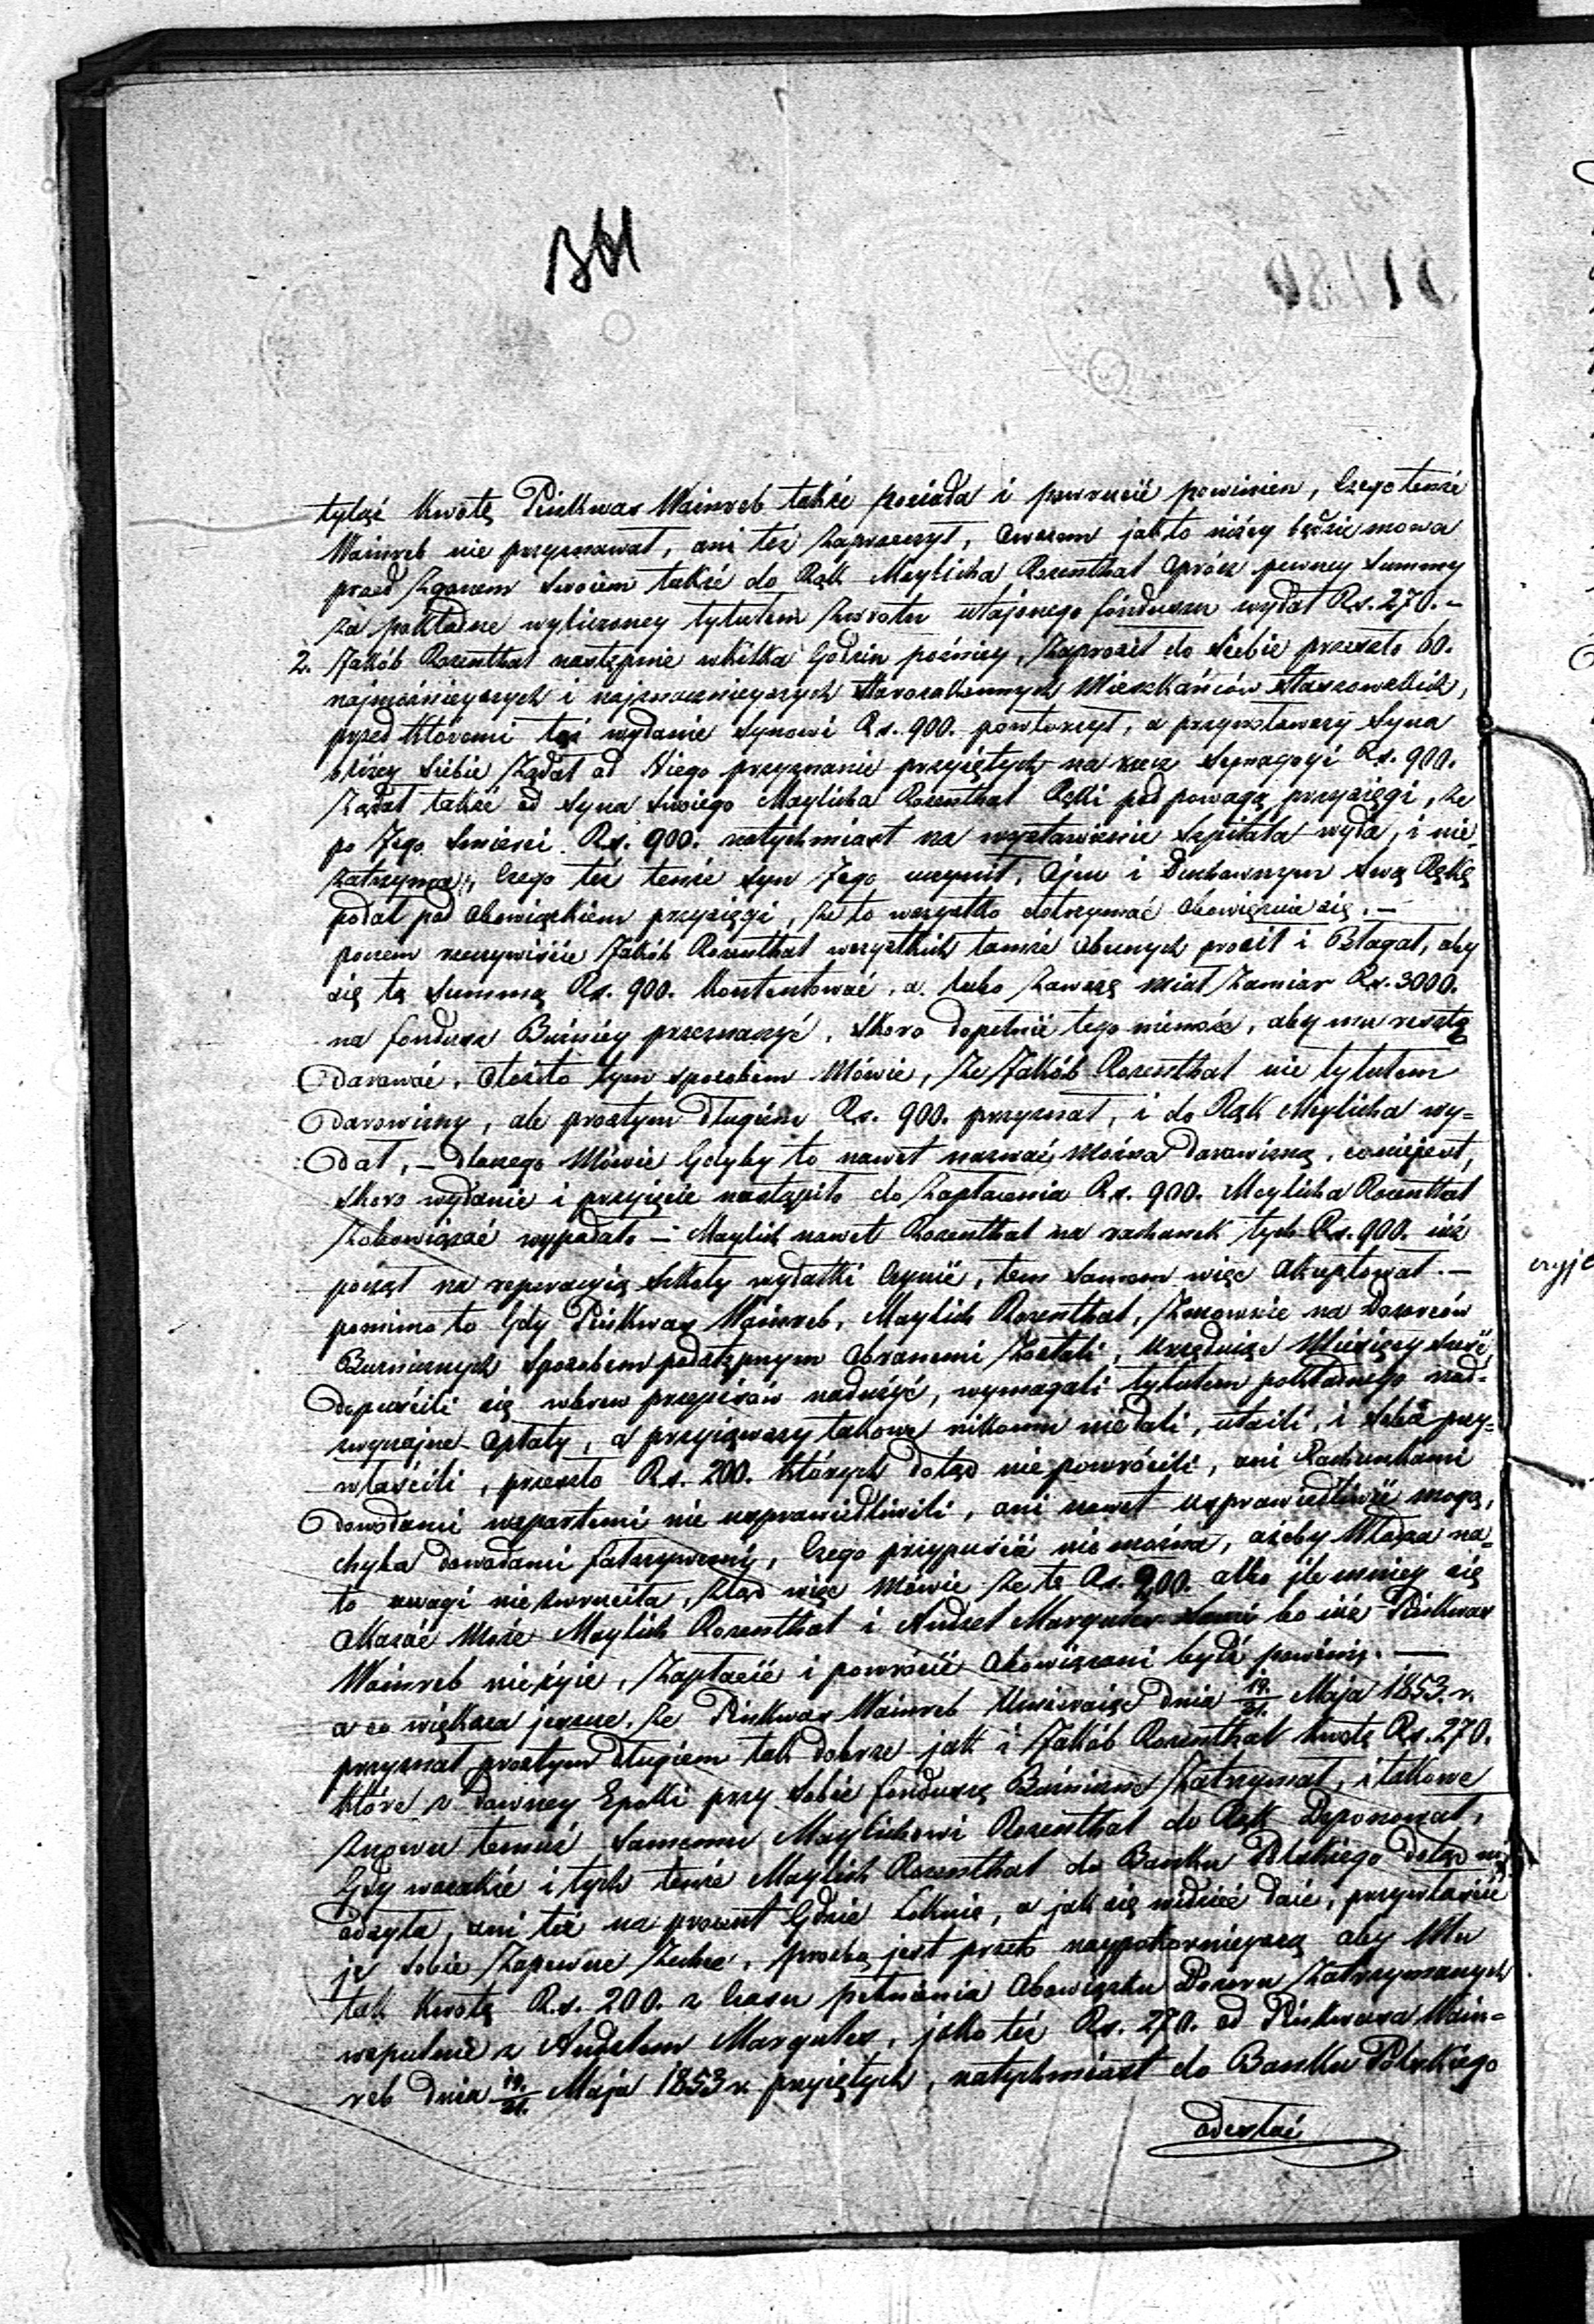 361
tyląż Kwotę Pinkwas Wainreb także posiada i powrucić powinien, czego tenże
Wainreb nie przyznawał, ani też zaprzeczył, owszem jak to niżey będzie mowa
przed zgonem swoiem także do Rąk Maylicha Rosenthal oprócz pewney Summy
za pokładne wyliczoney tytułem zwrotu utajonego funduszu wydał Rs. 270.–
2. Jakób Rosenthal następnie w kilka godzin poźniey, zaprosił do siebie przeszło 60.
najmożnieyszych i najznacznieyszych Starozakonnych Mieszkańców Staszowskich,
przed któremi też wydanie Synowi Rs. 900. powtorzył, a przywoławszy Syna
bliżey siebie żądał od Niego przyznanie przyiętych na rzecz Synagogi Rs. 900.
żądał także od Syna swoiego Maylicha Rosenthal Ręki pod powagą przysięgi, że
po Jego śmierci Rs. 900. natychmiast na wystawienie Szpitala wyda, i nie
zatrzyma, czego też tenże Syn Jego uczynił, Ojcu i Duchownym swą Rękę
podał pod obowiązkiem przysięgi, że to wszystko dotrzymać obowięzuie się.–
poczem rzeczywiście Jakób Rosenthal wszystkich tamże obecnych prosił i Błagał, aby
się tą Summą Rs. 900. kontentować, a lubo zawszę miał zamiar Rs. 3000.
na fundusz Bużnicy przeznaczyć, skoro dopełnić tego niemoże, aby mu resztę
Darować, otożto tym sposobem Mówię, że Jakób Rosenthal nie tytułem
Darowizny, ale prostym długiem Rs. 900. przyznał, i do Rąk Maylicha wy=
dał, – dlaczego Mówię gdyby to nawet nazwać można Darowizną, co niejest,
skoro wydanie i przyięcie nastąpiło do zapłacenia Rs. 900. Maylicha Rosenthal
zobowiązać wypadało – Maylich nawet Rosenthal na rachunek tych Rs. 900. iuż
począł na reperacyią Szkoły wydatki czynić, tem samem więc akceptował.–
pomimo to gdy Pinkwas Wainreb, Maylich Rosenthal, na Dozorców
Bużnicznych sposobem podstępnym obranemi zostali, urzęduiąc Miesięcy sześć
dopuścili się wbrew przepisów nadużyć, wymagali tytułem pokładnego nad=
zwyczajne opłaty, a przyiąwszy takowe nikomu nie dali, utaili, i sobie przy=
właścili, przeszło Rs. 200. których dotąd nie powrócili, ani Rachunkami
Dowodami wspartemi nie usprawiedliwili, ani nawet usprawiedliwić mogą,
chyba dowodami fałszywemi, czego przypuścić nie można, ażeby Władza na
to uwagi nie zwruciła, ztąd więc mówię że te Rs. 200. albo ile mniey się
okazać może Maylich Rosenthal i Andzel Margules sami bo iuż Pinkwas
Wainreb nieżyie, zapłacić i powrócić obowiązani bydź powinni.—
a co większa jeszcze, że Pinkwas Wainreb umieraiąc dnia 19./31. Maja 1853. r.
przyznał prostym długiem tak dobrze jak i Jakób Rosenthal kwotę Rs. 270.
które z dawney Epoki przy sobie fonduszę Bużniczne zatrzymał, i takowe
znowu temuż samemu Maylichowi Rosenthal do Rąk Deponował,
gdy wszakże i tych tenże Maylich Rosenthal do Banku Polskiego dotąd nie
odsyła, ani też na procent gdzie lokuie, a jak się widzieć daie, przywłaścić
je sobie zapewne zechce, prośba jest przeto naypokornieyszą aby Mu
tak Kwotę Rs. 200. z czasu pełnienia obowiązku Dozoru zatrzymanych
wspulnie z Andzelem Margules, jako też Rs. 270. od Pinkwasa Wain=
reb dnia 19./31. Maja 1853 r. przyiętych, natychmiast do Banku Polskiego
odesłać